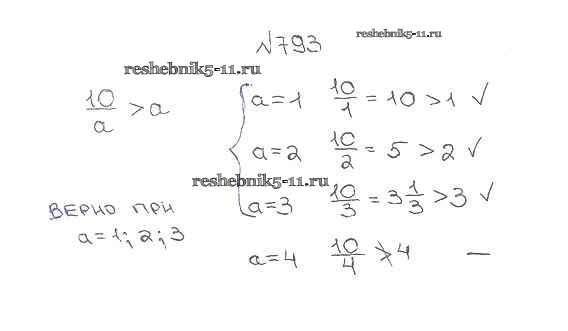 №793
reshebnik5-11.ru
reshebnik5-11.ru
10/a > a
a=1 10/1 = 10 > 1 ✓
a=2 10/2 = 5 > 2 ✓
reshebnik5-11.ru
a=3 10/3 = 3 1/3 > 3 ✓
ВЕРНО ПРИ
a=1; 2; 3
a=4 10/4 ≯ 4 —